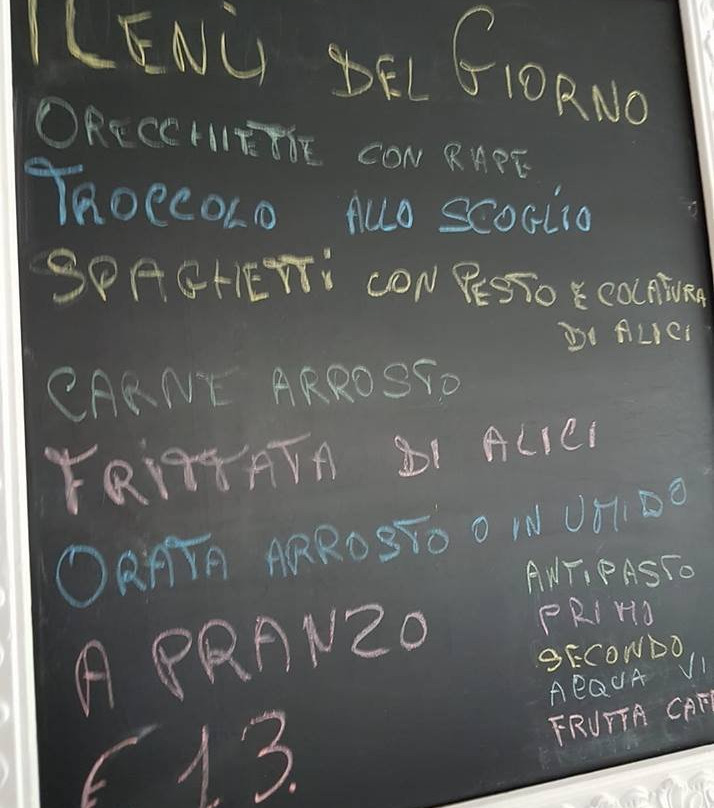 MENÙ DEL GIORNO
ORECCHIETTE CON RAPE
TROCCOLO ALLO SCOGLIO
SPAGHETTI CON PESTO E COLATURA
DI ALICI
CARNE ARROSTO
FRITTATA DI ALICI
ORATA ARROSTO O IN UMIDO
A PRANZO
€ 13.
ANTIPASTO
PRIMO
SECONDO
ACQUA VI
FRUTTA CAF